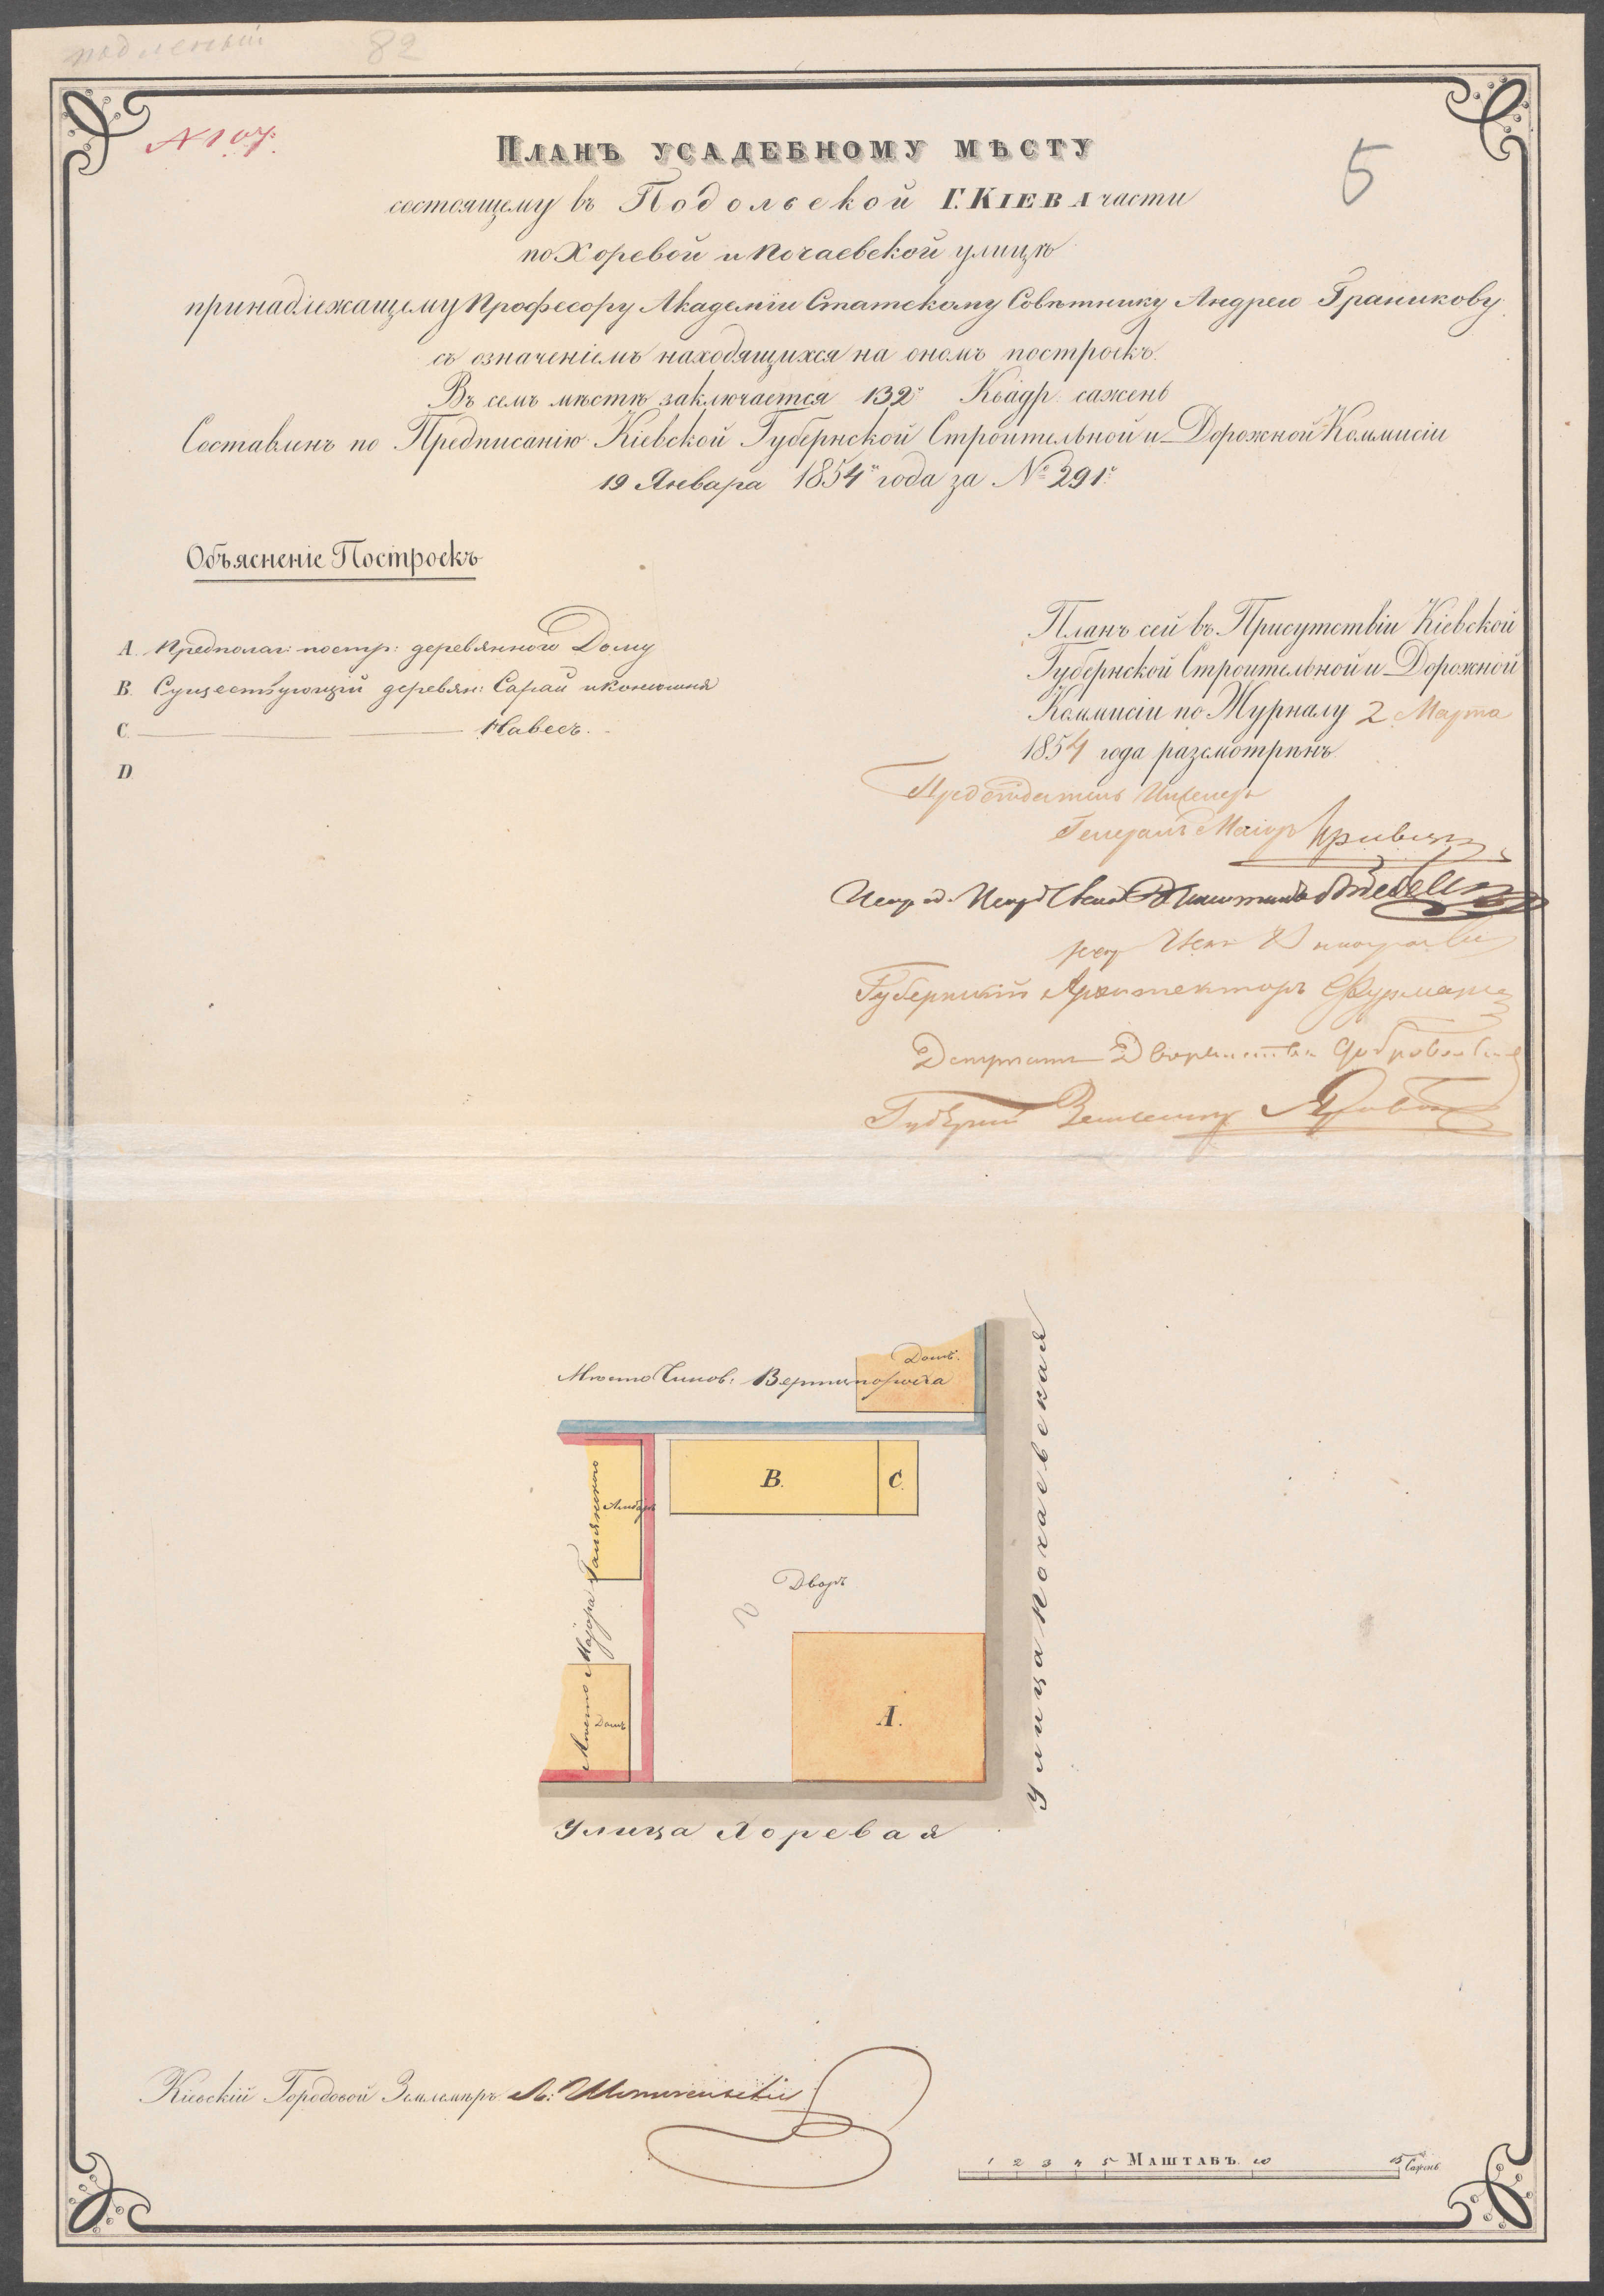 82
N 107.
5
Планъ усадебному мѣсту
состоящему въ Подольской Г. Кіева части
по Хоревой и Почаевской улицѣ
принадлежащему Професору Академіи Статскому Совѣтнику Андрею Граникову
съ означеніемъ находящихся на ономъ построекъ.
Въ семъ мѣстѣ заключается 132 Квадр: сажень
Составленъ по Предписанію Кіевской Губернской Строительной и Дорожной Коммисіи
19 Января 1854 года за № 291
Объясненіе Построекъ
A. Предполаг: постр: деревянного Дому
B. Существующій деревян: Сарай и конюшня
C. Навесъ.
D.
Планъ сей въ Присутствіи Кіевской
Губернской Строительной и Дорожной
Коммисіи по Журналу 2 Марта
1854 года разсмотрѣнъ
Предсѣдатель Инженеръ
Генералъ Маіоръ
Губернскій Архитекторъ
Депутатъ Дворянства
Губерн Землемѣр
Домъ.
Мѣсто Чинов: Вертипороха
B.
C.
Амбаръ
Мѣсто Маіора
Дворъ
A.
Домъ
Улица Почаевская
Улица Хоревая
Кіевскій Городовой Землемѣръ
1 2 3 4 5 Маштабъ. 10 15 Сажень